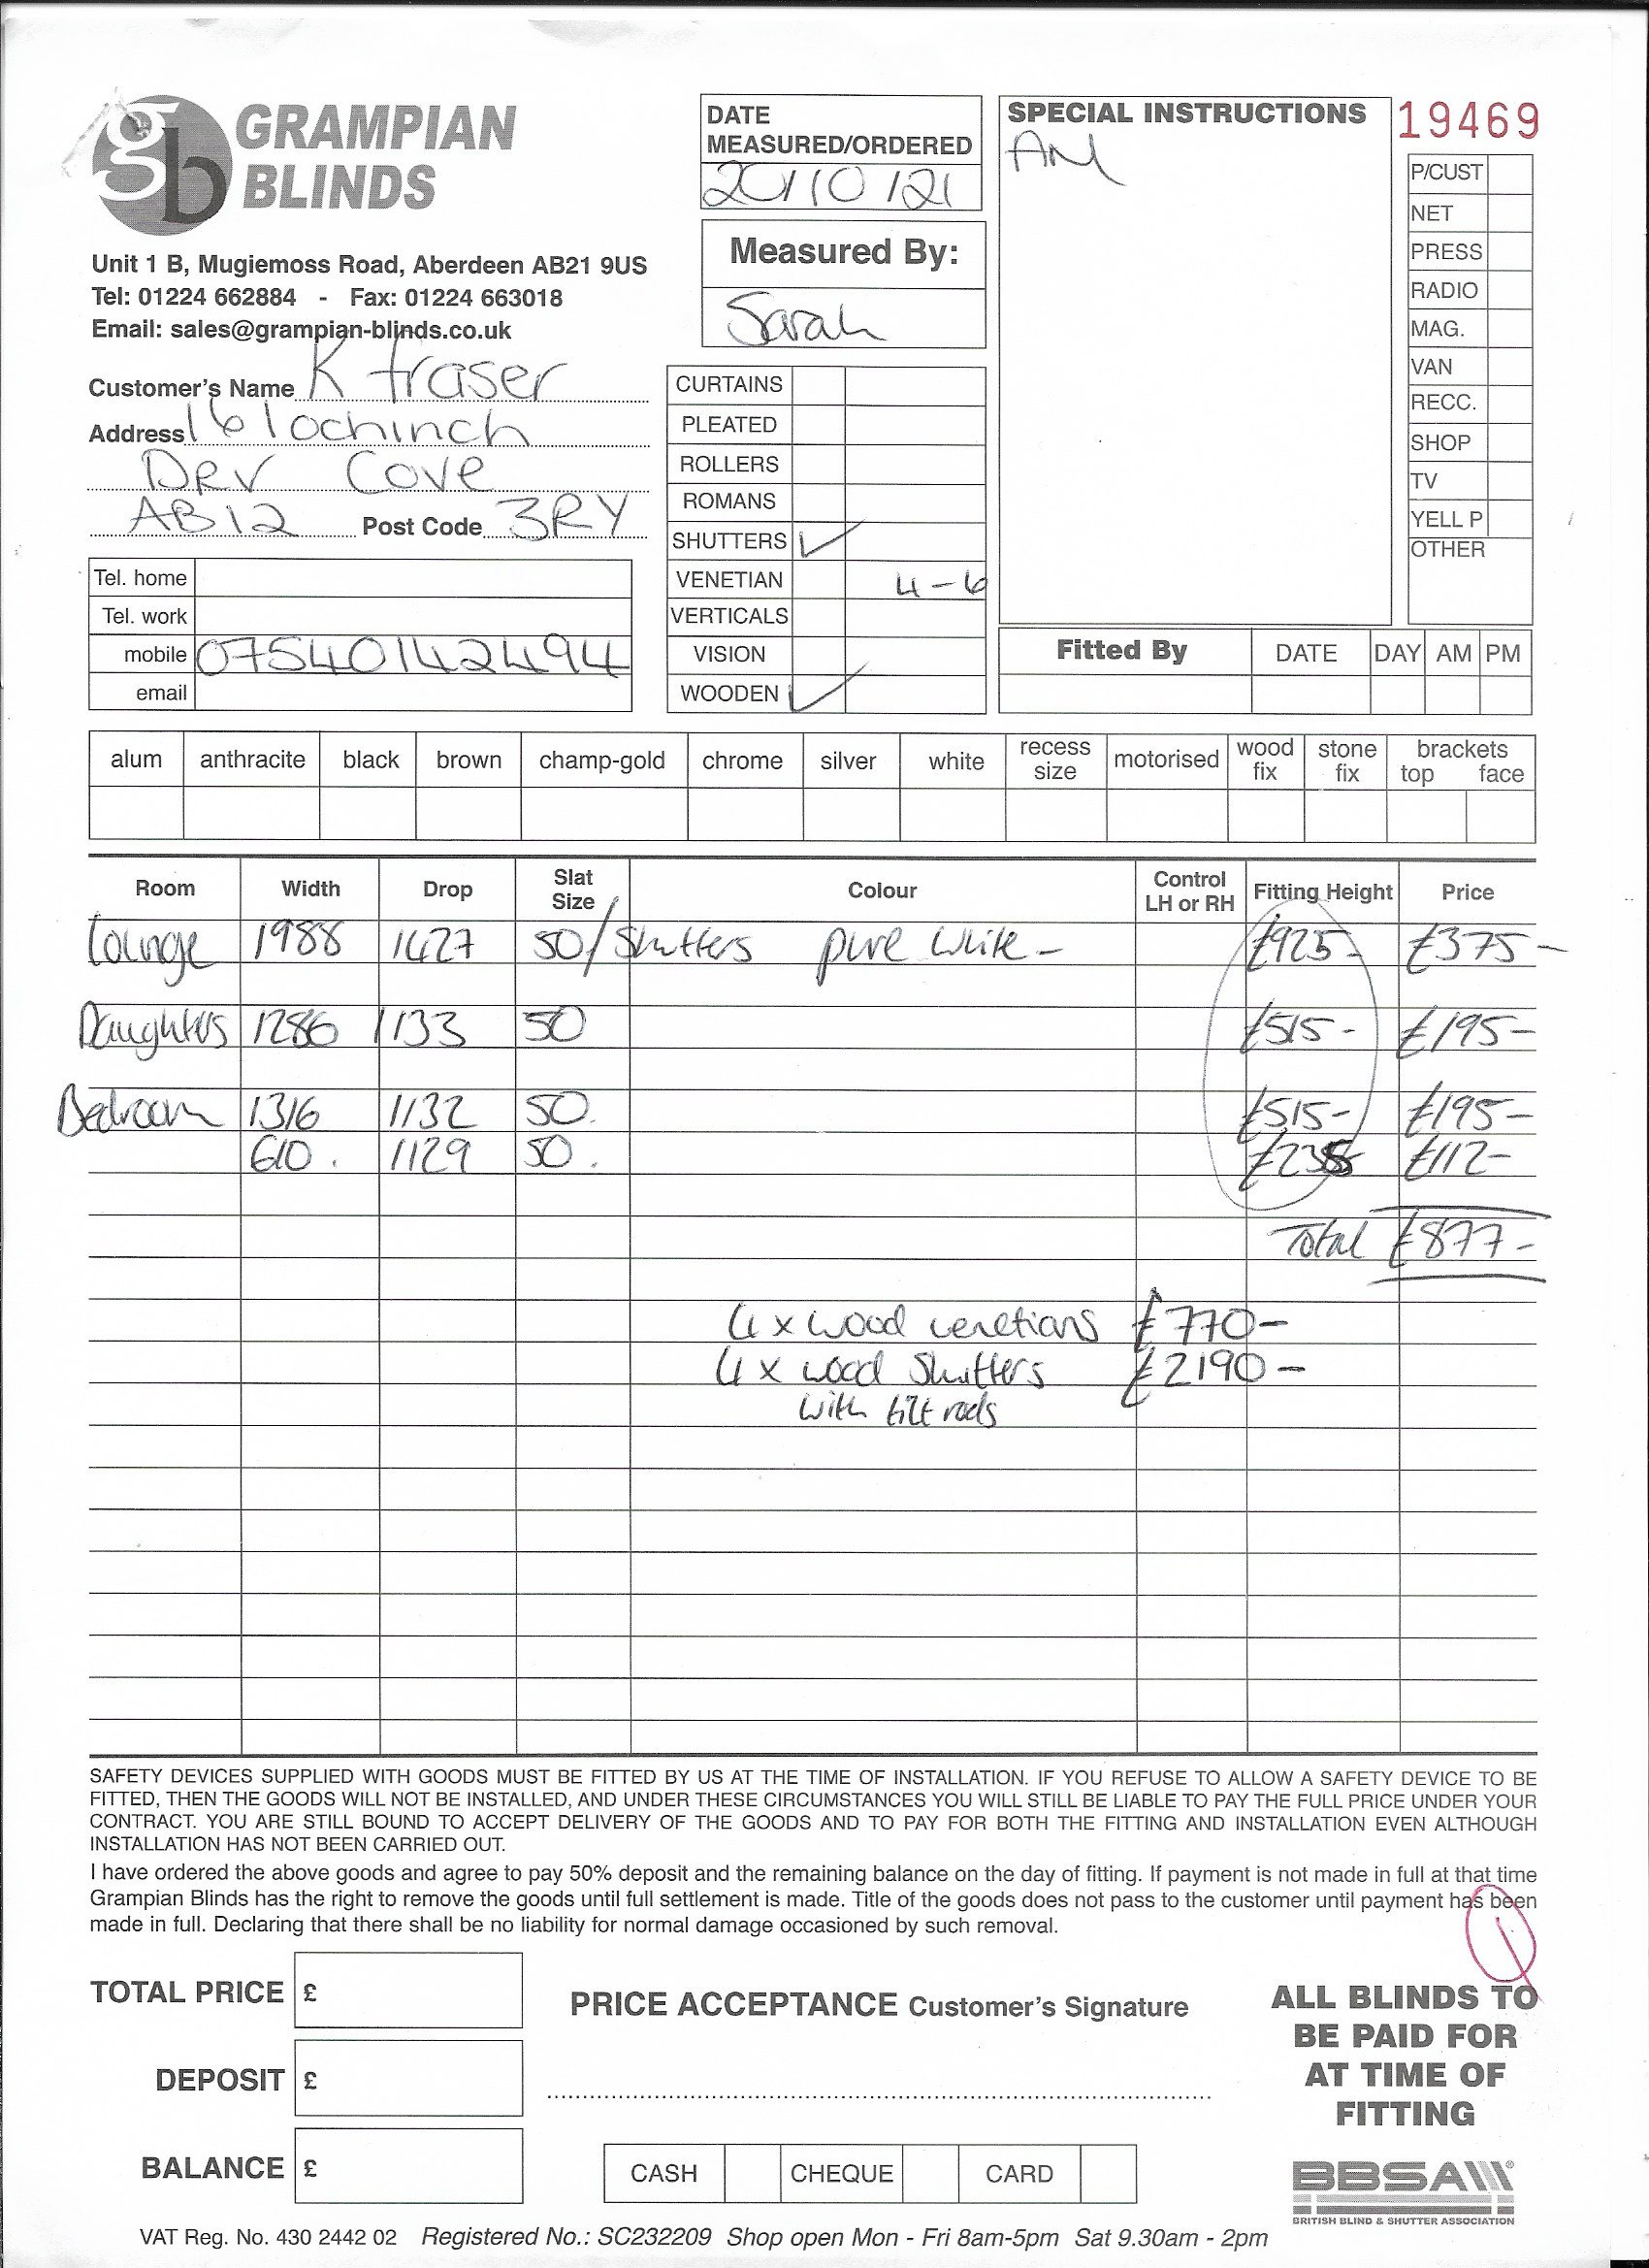 gb GRAMPIAN
BLINDS
Unit 1 B, Mugiemoss Road, Aberdeen AB21 9US
Tel: 01224 662884 - Fax: 01224 663018
Email: sales@grampian-blinds.co.uk
Customer's Name K fraser
Address 16 lochinch
Drv Cove
AB12 Post Code 3RY
Tel. home
Tel. work
mobile 07540142494
email
DATE
MEASURED/ORDERED
20/10/21
Measured By:
Sarah
CURTAINS
PLEATED
ROLLERS
ROMANS
SHUTTERS ✓
VENETIAN 4-6
VERTICALS
VISION
WOODEN ✓
SPECIAL INSTRUCTIONS
AM
19469
P/CUST
NET
PRESS
RADIO
MAG.
VAN
RECC.
SHOP
TV
YELL P
OTHER
Fitted By DATE DAY AM PM
alum anthracite black brown champ-gold chrome silver white recess size motorised wood fix stone fix brackets top face
Room Width Drop Slat Size Colour Control LH or RH Fitting Height Price
Lounge 1988 1427 50/Shutters pure White - £925- £375-
Daughters 1286 1133 50 £515- £195-
Bedroom 1316 1132 50. £515- £195-
610. 1129 50. £235 £112-
Total £877-
4 x wood venetians £770-
4 x wood Shutters £2190-
with tilt rods
SAFETY DEVICES SUPPLIED WITH GOODS MUST BE FITTED BY US AT THE TIME OF INSTALLATION. IF YOU REFUSE TO ALLOW A SAFETY DEVICE TO BE
FITTED, THEN THE GOODS WILL NOT BE INSTALLED, AND UNDER THESE CIRCUMSTANCES YOU WILL STILL BE LIABLE TO PAY THE FULL PRICE UNDER YOUR
CONTRACT. YOU ARE STILL BOUND TO ACCEPT DELIVERY OF THE GOODS AND TO PAY FOR BOTH THE FITTING AND INSTALLATION EVEN ALTHOUGH
INSTALLATION HAS NOT BEEN CARRIED OUT.
I have ordered the above goods and agree to pay 50% deposit and the remaining balance on the day of fitting. If payment is not made in full at that time
Grampian Blinds has the right to remove the goods until full settlement is made. Title of the goods does not pass to the customer until payment has been
made in full. Declaring that there shall be no liability for normal damage occasioned by such removal.
TOTAL PRICE £
DEPOSIT £
BALANCE £
PRICE ACCEPTANCE Customer's Signature
CASH CHEQUE CARD
ALL BLINDS TO
BE PAID FOR
AT TIME OF
FITTING
BBSA®
BRITISH BLIND & SHUTTER ASSOCIATION
VAT Reg. No. 430 2442 02 Registered No.: SC232209 Shop open Mon - Fri 8am-5pm Sat 9.30am - 2pm